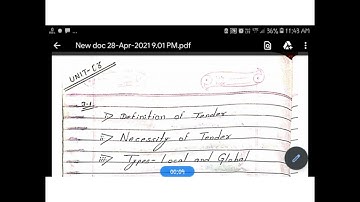 36% 11:43 AM
New doc 28-Apr-2021 9.01 PM.pdf
UNIT-
i) Definition of Tender
ii) Necessity of Tender
iii) Types- Local and Global
00:09